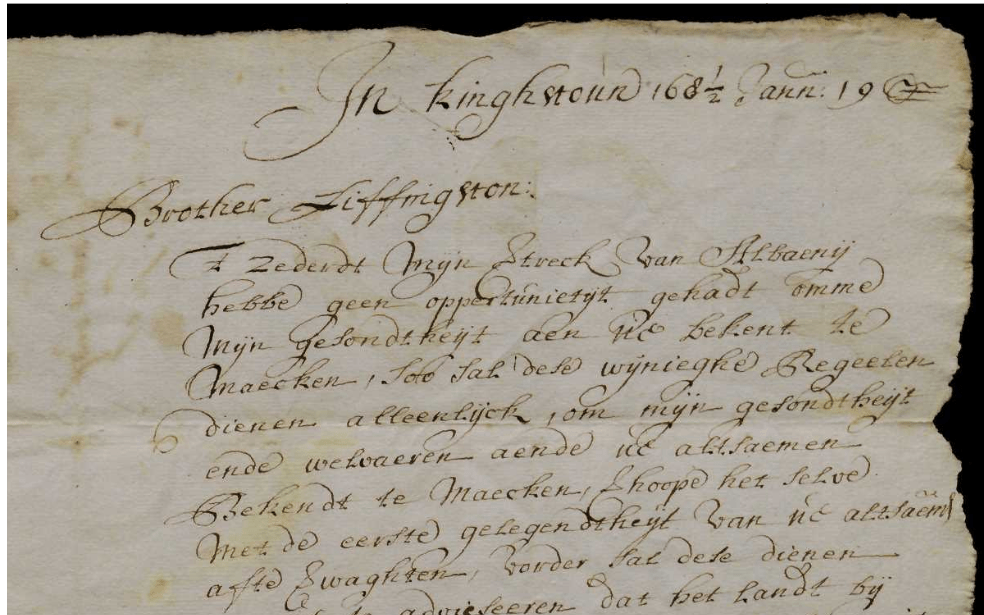 In Kinghstoun 168½ Jann: 19
Brother Liffingston:
T zederdt Mijn Vtreck van Albaenij
hebbe geen oppertunietyt gehadt omme
Mijn gesondtheijt aen UE bekent te
Maecken, soo sal dese wijnieghe Regeelen
dienen alleenlijck, om mijn gesondtheijt
ende welvaeren aende UE altsaemen
Bekendt te Maecken, Ihoope het selve
Met de eerste gelegendtheijt van UE altsaem
affte Vwaghten, vorder sal dese dienen
advieseeren dat het Landt bij